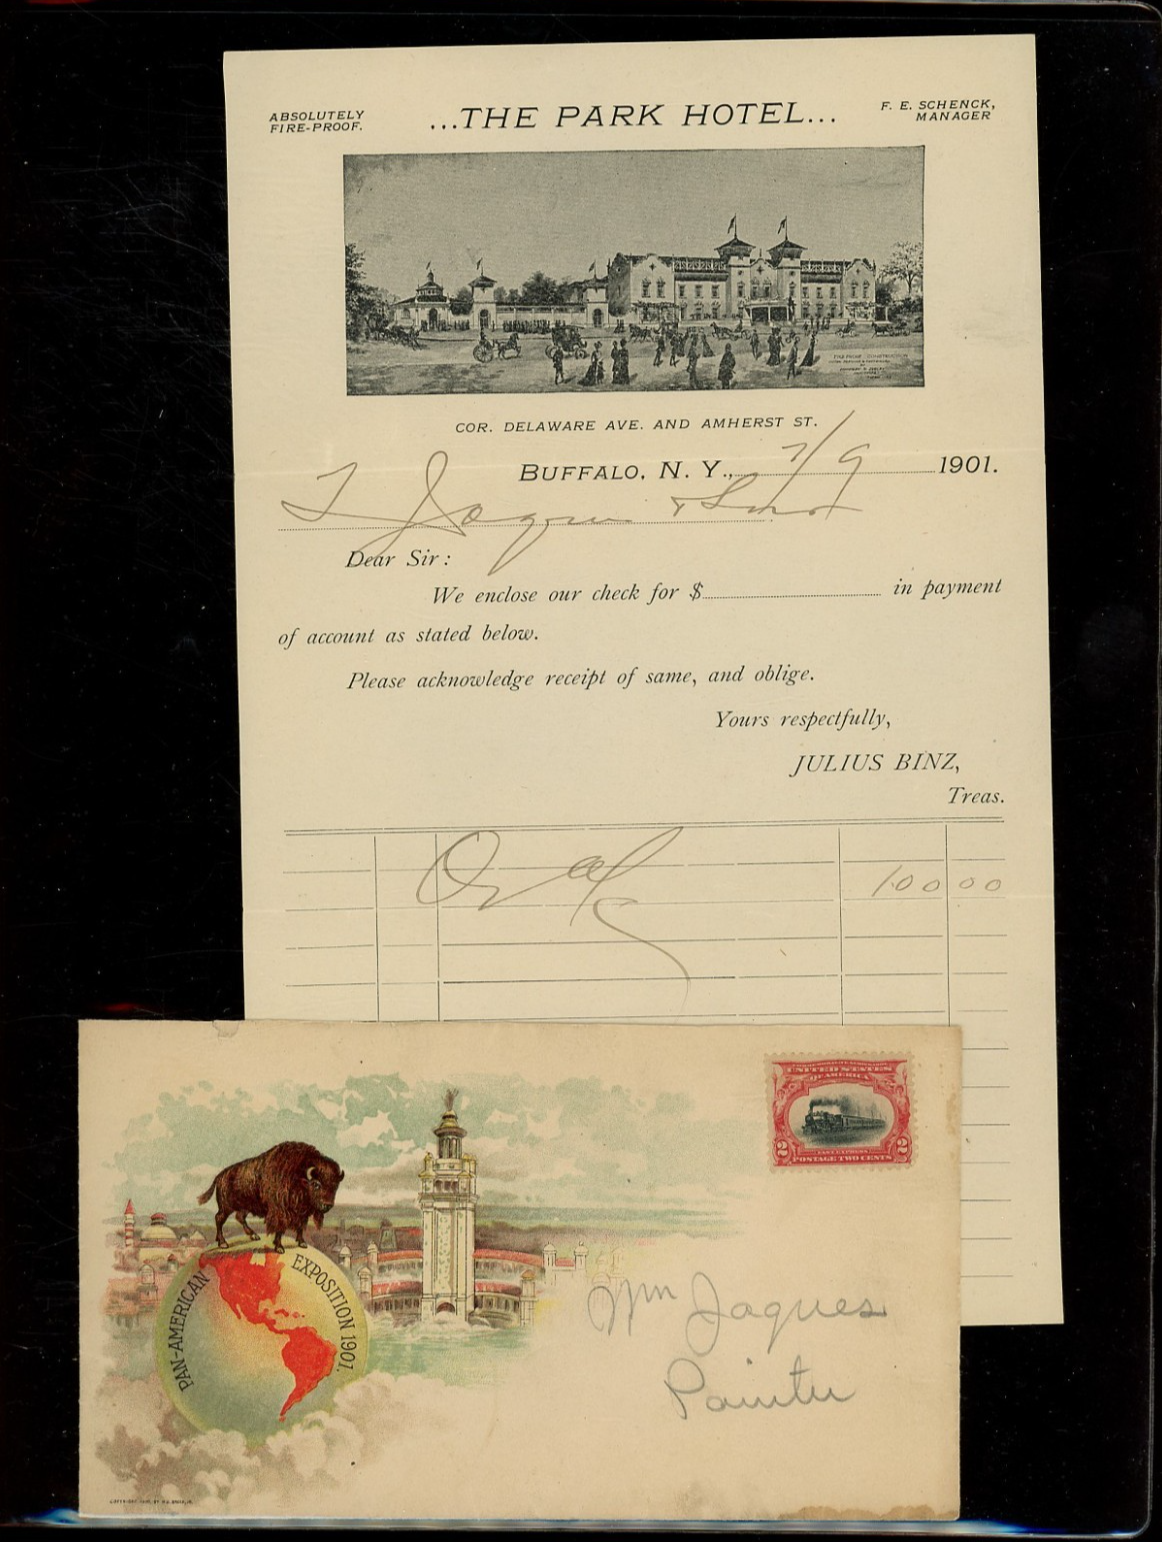 ABSOLUTELY
FIRE-PROOF.
...THE PARK HOTEL...
F. E. SCHENCK,
MANAGER
COR. DELAWARE AVE. AND AMHERST ST.
BUFFALO, N. Y., 7/9 1901.
Jaques & Sons
Dear Sir:
We enclose our check for $ in payment
of account as stated below.
Please acknowledge receipt of same, and oblige.
Yours respectfully,
JULIUS BINZ,
Treas.
100 00
UNITED STATES
OF AMERICA
2 2
FAST EXPRESS
POSTAGE TWO CENTS
PAN-AMERICAN EXPOSITION 1901.
Wm Jaques
Painter